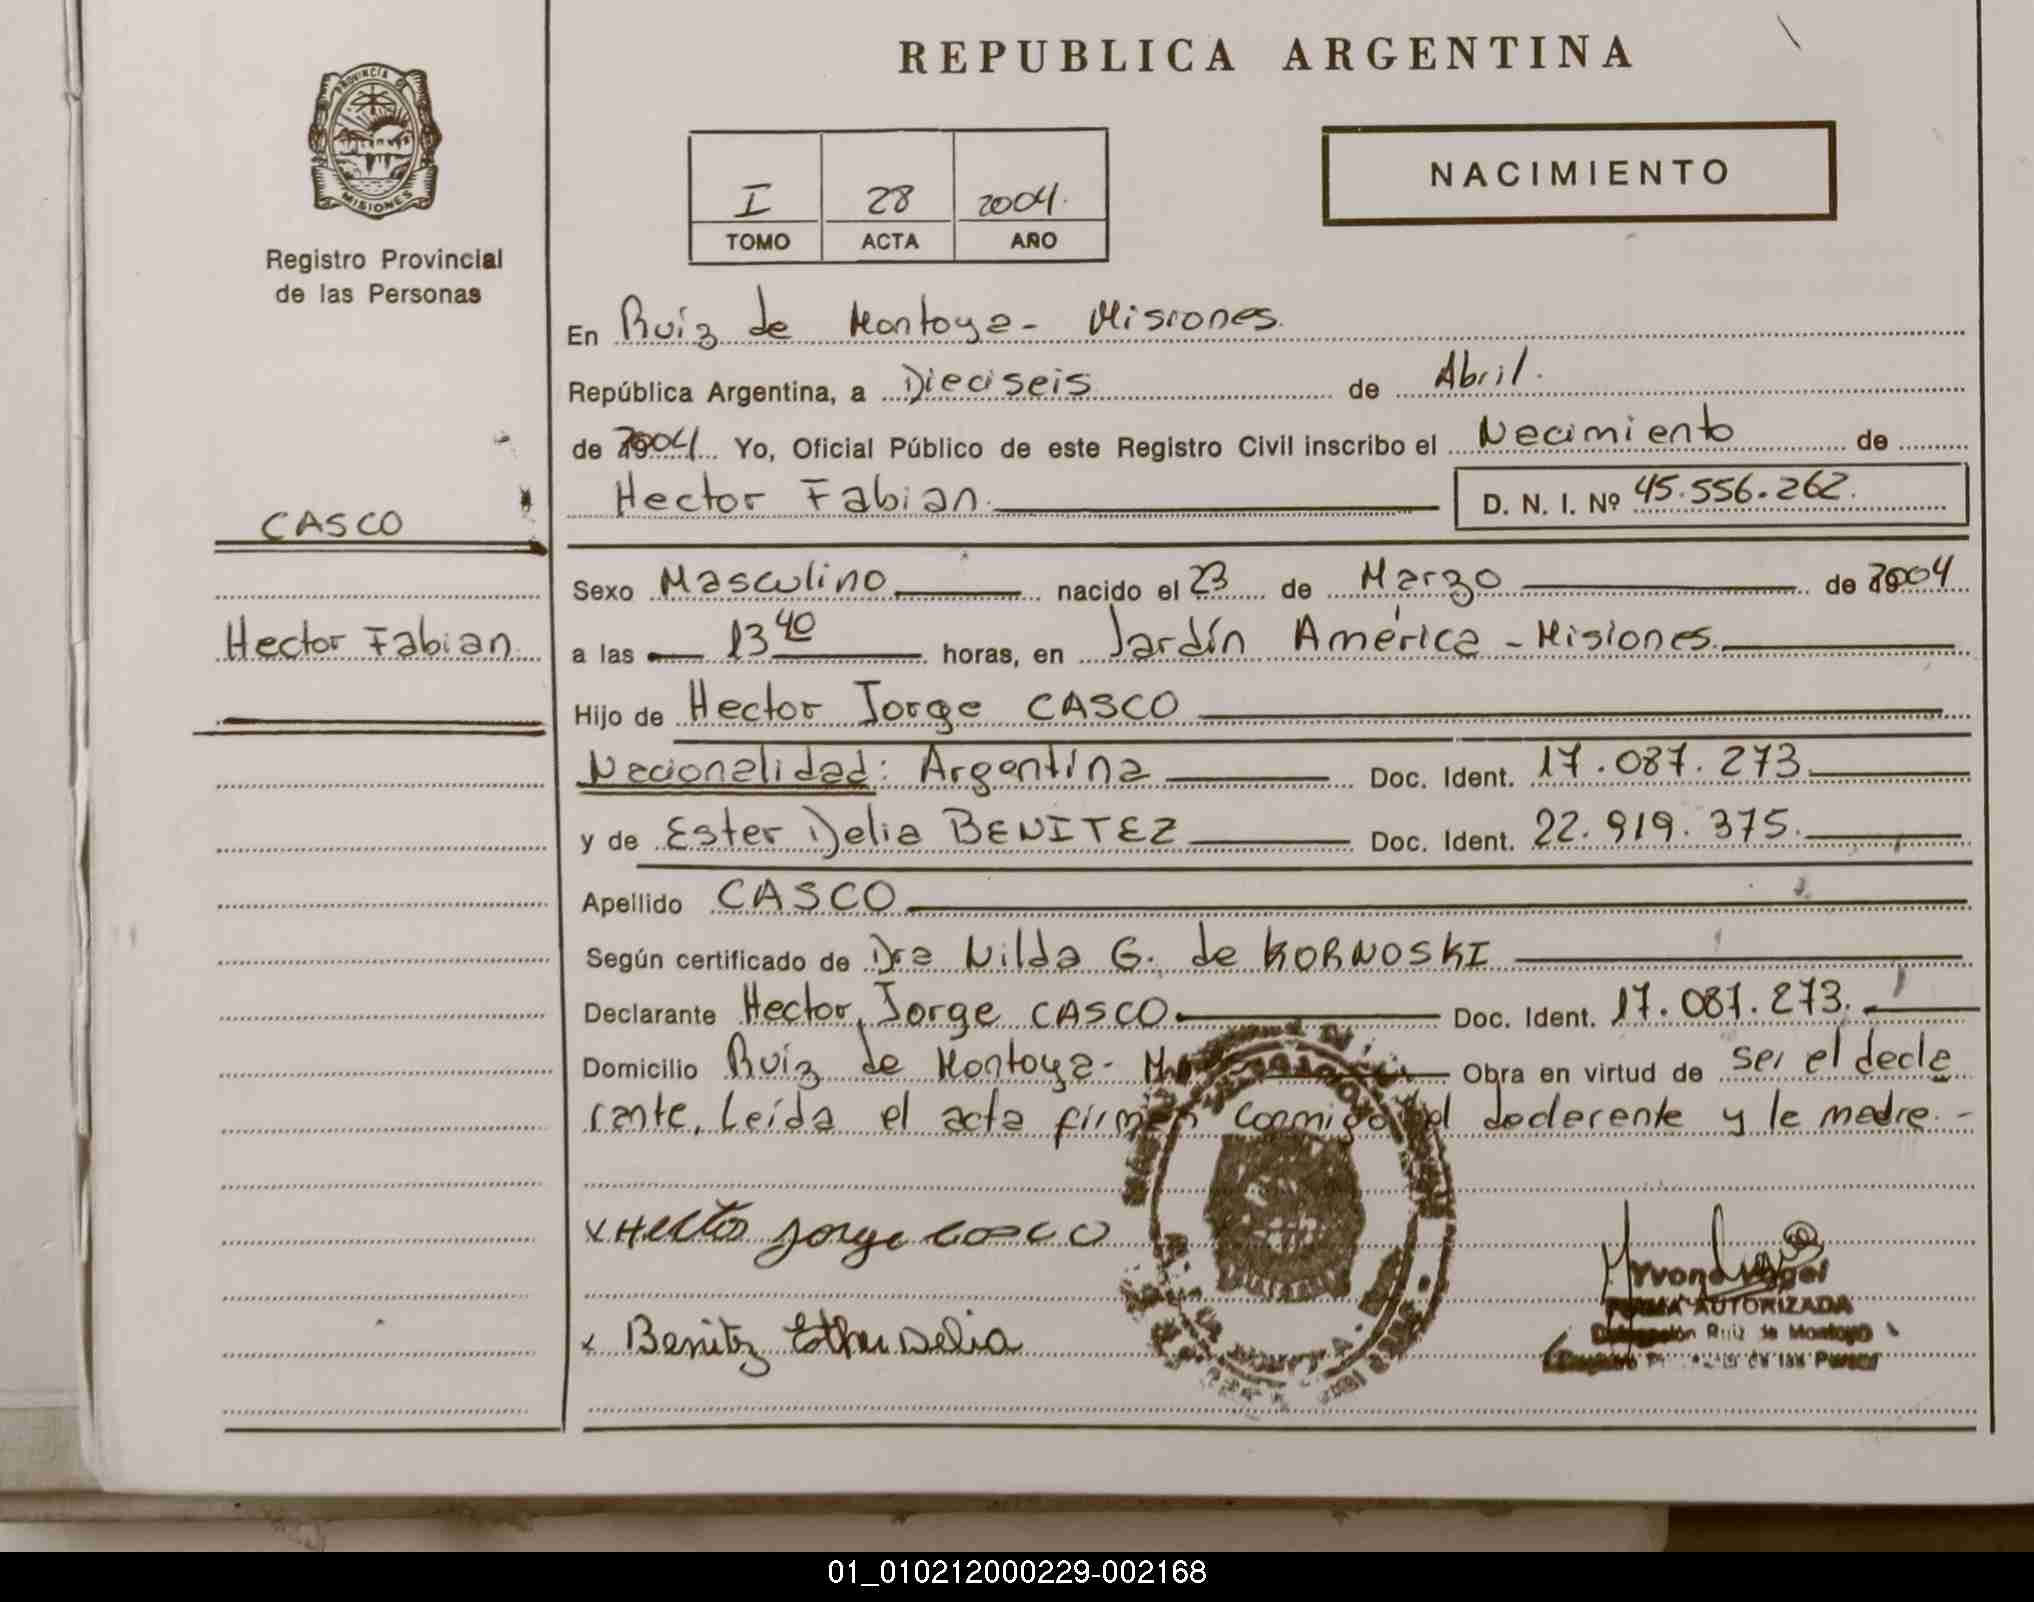 REPUBLICA ARGENTINA
PROVINCIA DE
MISIONES
Registro Provincial
de las Personas
I 28 2004.
TOMO ACTA AÑO
NACIMIENTO
En Ruíz de Montoya - Misiones
República Argentina, a Dieciseis de Abril.
de 2004 Yo, Oficial Público de este Registro Civil inscribo el Nacimiento de
Hector Fabian. D. N. I. Nº 45.556.262.
CASCO
Hector Fabian
Sexo Masculino nacido el 23 de Marzo de 2004
a las 13 40 horas, en Jardín América - Misiones.
Hijo de Hector Jorge CASCO
Nacionalidad: Argentina Doc. Ident. 17.087.273
y de Ester Delia BENITEZ Doc. Ident. 22.919.375.
Apellido CASCO
Según certificado de Dra Nilda G. de KORNOSKI
Declarante Hector Jorge CASCO Doc. Ident. 17.087.273.
Domicilio Ruíz de Montoya - Obra en virtud de ser el decla
rante. Leída el acta firman conmigo el declarante y la madre. -
x Hector Jorge Casco
x Benitz Esther Delia
FIRMA AUTORIZADA
Delegación Ruiz de Montoya
01_010212000229-002168